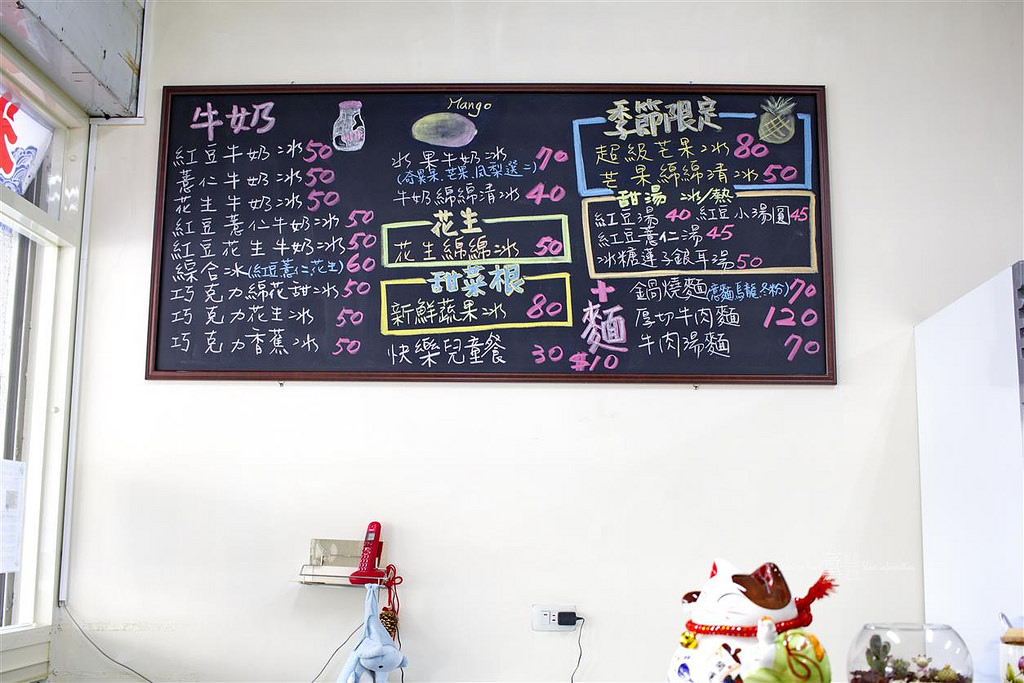 牛奶
紅豆牛奶冰 50
薏仁牛奶冰 50
花生牛奶冰 50
紅豆薏仁牛奶冰 50
紅豆花生牛奶冰 50
綜合冰(紅豆薏仁花生) 60
巧克力綿花甜冰 50
巧克力花生冰 50
巧克力香蕉冰 50
Mango
水果牛奶冰 70
(奇異果.芒果.鳳梨選一)
牛奶綿綿清冰 40
花生
花生綿綿冰 50
甜菜根
新鮮蔬果冰 80
快樂兒童餐 30
季節限定
超級芒果冰 80
芒果綿綿清冰 50
甜湯 冰/熱
紅豆湯 40 紅豆小湯圓 45
紅豆薏仁湯 45
冰糖蓮子銀耳湯 50
十麵 $10
鍋燒麵(意麵烏龍冬粉) 70
厚切牛肉麵 120
牛肉湯麵 70